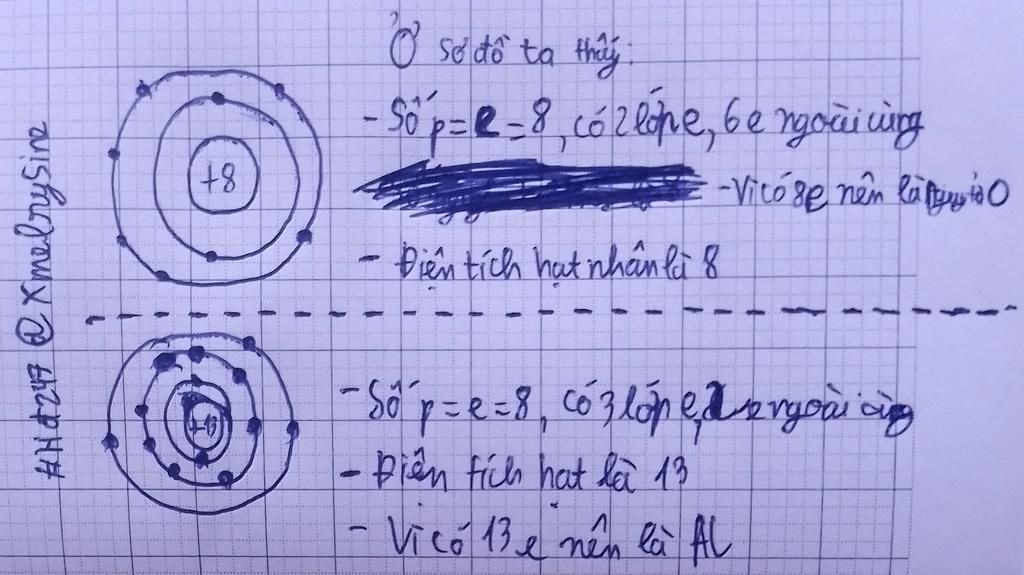 Ở sơ đồ ta thấy:
- Số p = e = 8, có 2 lớp e, 6 e ngoài cùng
+8
- Vì có 8e nên là O
- Điện tích hạt nhân là 8
#Hd247 @Xmelrysine
- Số p = e = 8, có 3 lớp e, ngoài cùng
+13
- Điện tích hạt là 13
- Vì có 13 e nên là AL